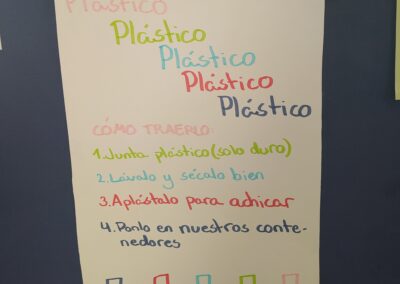 Plástico
Plástico
Plástico
Plástico
Plástico
CÓMO TRAERLO:
1. Junta plástico (solo duro)
2. Lávalo y sécalo bien
3. Aplástalo para achicar
4. Ponlo en nuestros conte-
nedores